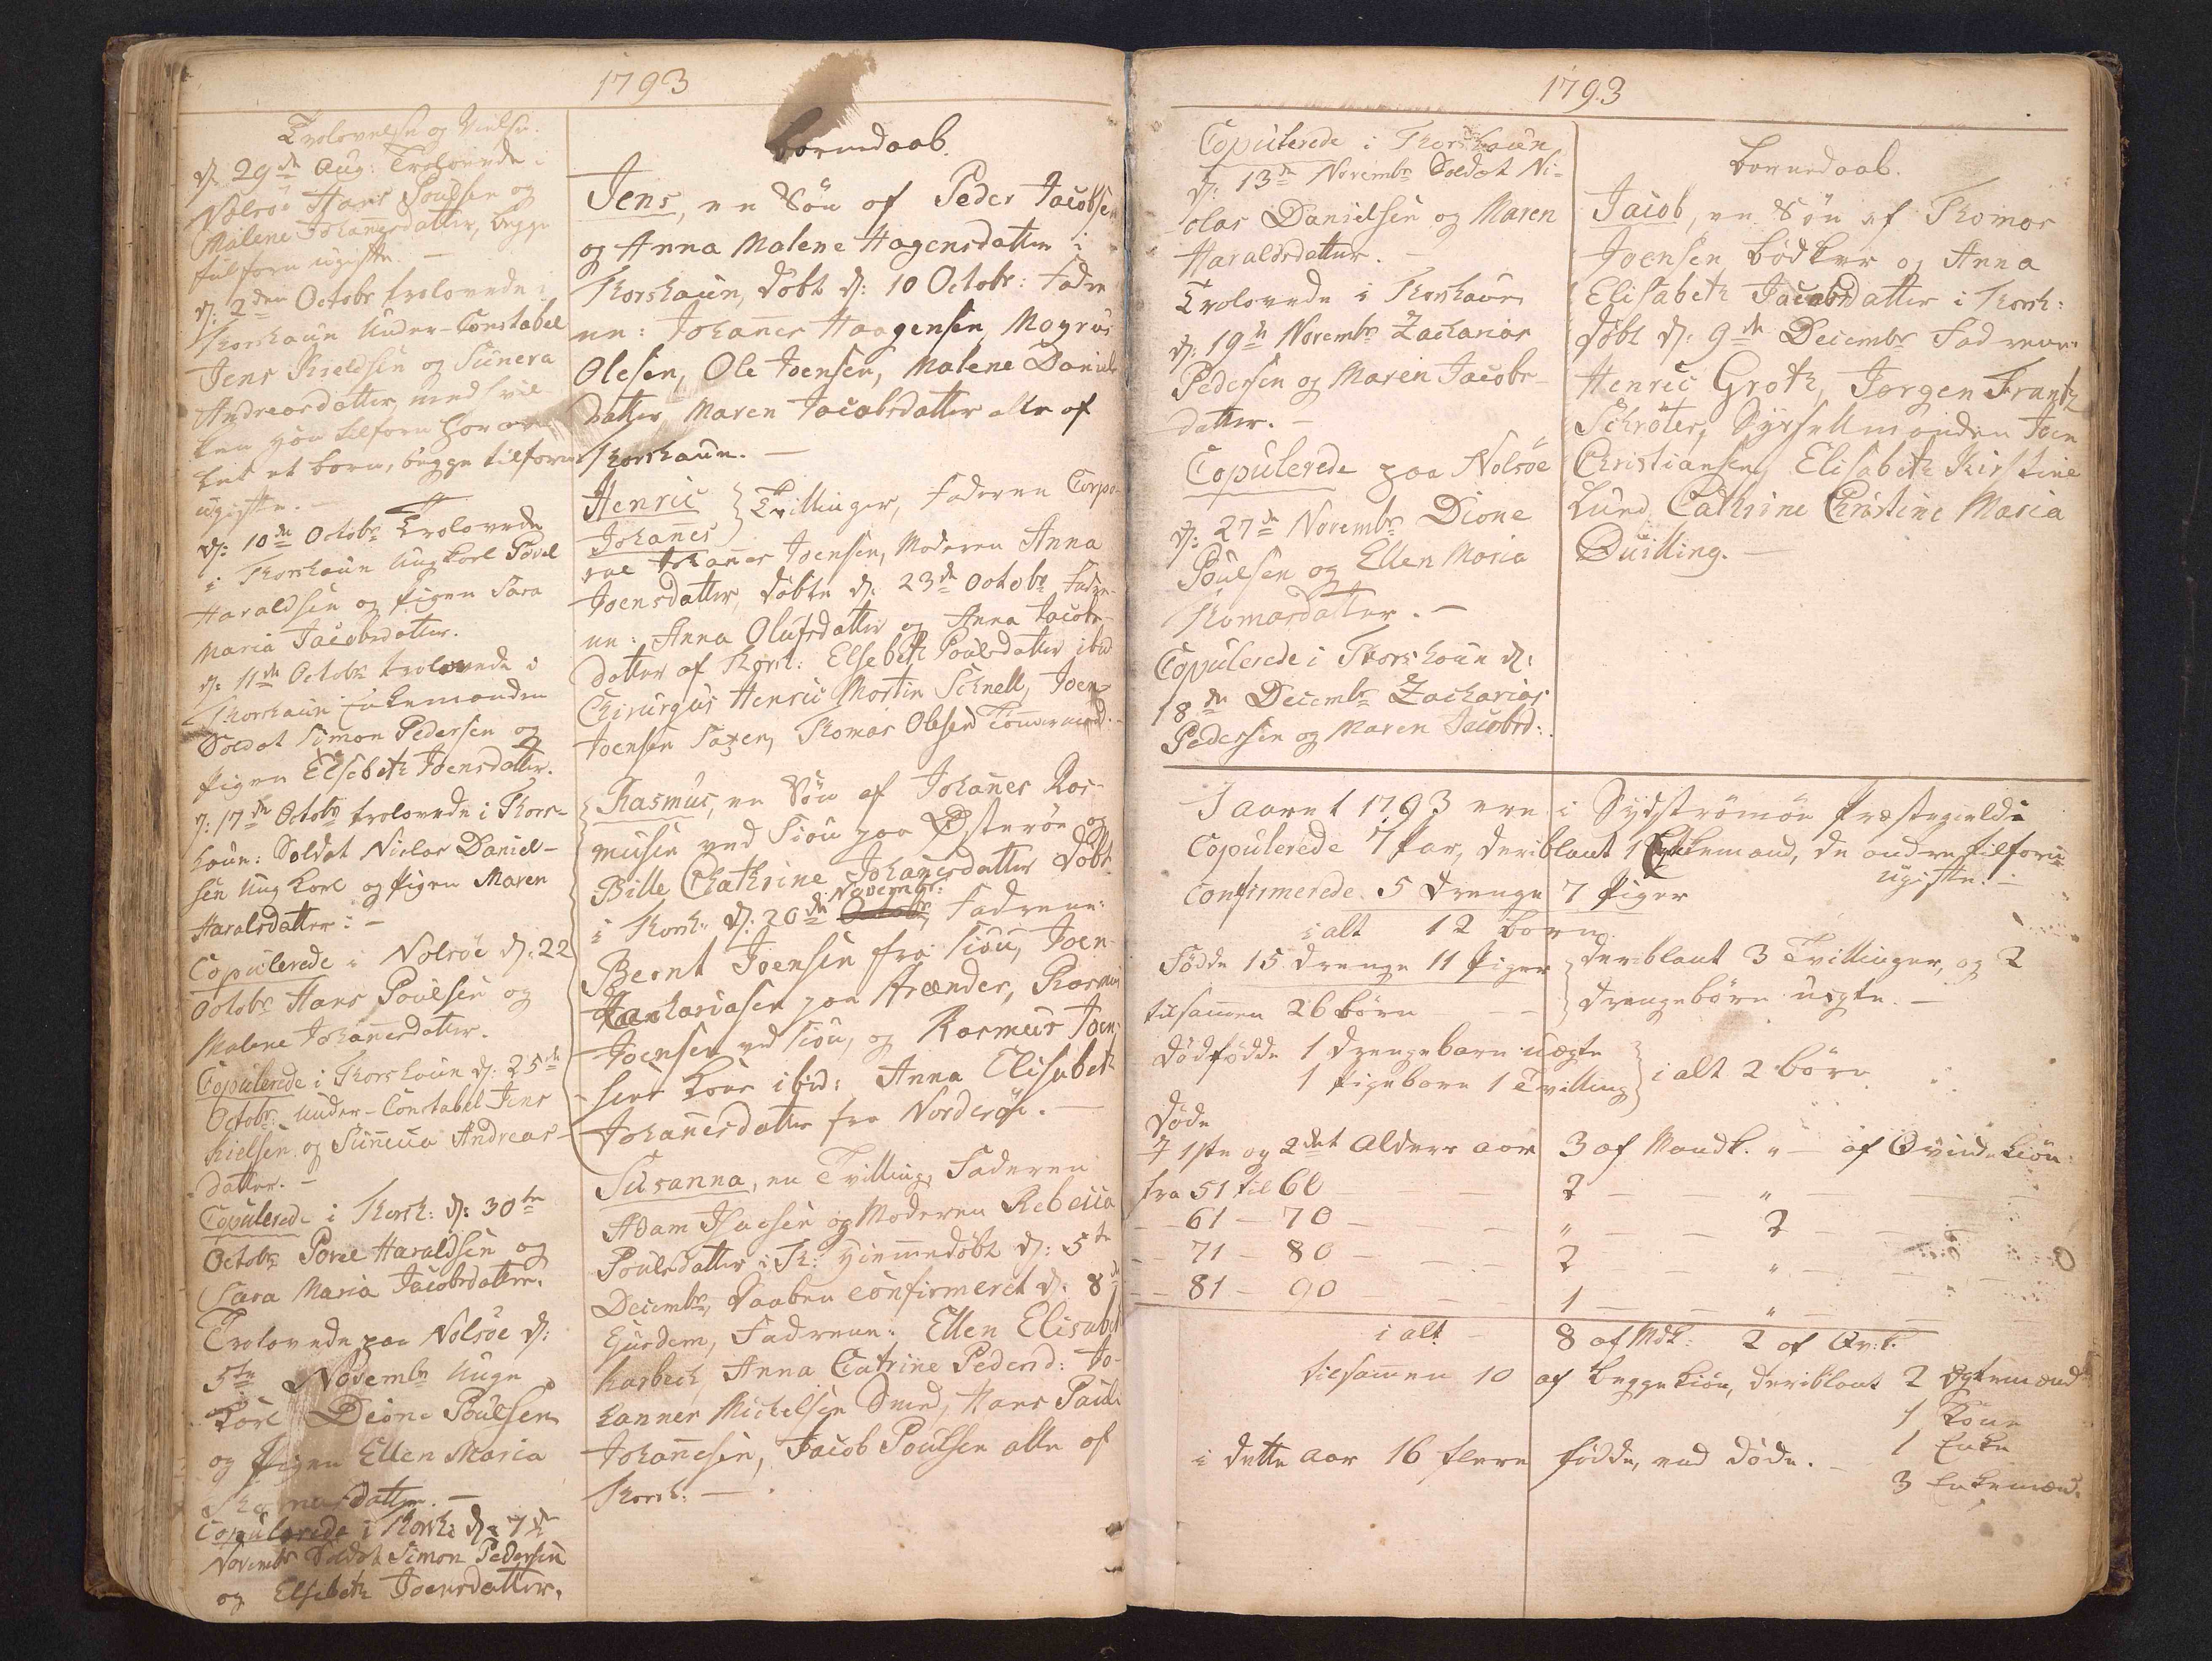 1793
Trolovelse og Vielse.
d. 29de Aug: Trolovede i
Nolsöe Hans Poulsen og
Malene Johannesdatter, begge
tilforn ugifte. —
d: 2den Octobr trolovede i
Thorshaun Under-Constabel
Jens Kieldsen og Sunneva
Andreasdatter, med hvil-
ken han tilforn har av-
let et barn, begge tilforn
ugifte. —
d: 10de Octobr Trolovede
i Thorshaun Ungkarl Povel
Haraldsen og Pigen Sara
Maria Jacobsdatter.
d: 11te Octobr trolovede i
Thorshaun Enkemanden
Soldat Simon Pedersen og
Pigen Elsebeth Joensdatter.
d: 17de Octobr trolovede i Thors-
haun: Soldat Niclas Daniel-
sen Ungkarl og Pigen Maren
Haralsdatter: —
Copulerede i Nolsöe d: 22
Octobr Hans Poulsen og
Malene Johannesdatter.
Copulerede i Thorshaun d: 25de
Octobr: Under-Constabel Jens
Kielsen og Sunneva Andreas-
datter. —
Copulerede i Thorsh: d: 30te
Octobr Povel Haraldsen og
Sara Maria Jacobsdatter.
Trolovede paa Nolsöe d:
5te Novembr Unge
Karl Dione Poulsen
og Pigen Ellen Maria
Thomasdatter. —
Copulerede i Thorsh: d: 7de
Novembr Soldat Simon Pedersen
og Elsebeth Joensdatter.
Barnedaab.
Jens, en Sön af Peder Jacobsen
og Anna Malene Hagensdatter i
Thorshaun, döbt d: 10 Octobr: Fadre
ne: Johannes Haagensen, Magnus
Olesen, Ole Joensen, Malene Daniels
datter, Maren Jacobsdatter alle af
Thorshaun. —
Henric } Tvillinger, Faderen Corpo-
Johannes
ral Johannes Joensen, Moderen Anna
Joensdatter, döbte d: 23de Octobr Fadre-
ne: Anna Olufsdatter og Anna Jacobs-
datter af Thorsh: Elsebeth Poulsdatter ibid
Chirurgus Henric Martin Schnell, Joen
Joensen Saxen, Thomas Olesen Tömmermand. —
Rasmus, en Sön af Johannes Ras-
musen ved Siöu paa Österöe og
Bille Chathrine Johannesdatter döbt
Novembr:
i Thorsh: d: 20de Octobr, Fadrene:
Bernt Joensen fra Siöu, Joen
Zachariasen paa Strænder, Rasmus
Joensen ved Siöu, og Rasmus Joen-
sens Kone ibid: Anna Elisabeth
Johannesdatter fra Norderöe. —
Susanna, en Tvilling, Faderen
Adam Isacsen og Moderen Rebecca
Poulsdatter i Th: Hiemmedöbt d: 5te
Decembr, Daaben confirmeret d: 8de
Ejusdem, Fadrene: Ellen Elisabeth
Harbech, Anna Catrine Pedersd: Jo-
hannes Michelsen Smed, Hans Pauli
Johannesen, Jacob Poulsen alle af
Thorsh: —
1793
Copulerede i Thorshaun
d: 13de Novembr Soldat Ni-
colas Danielsen og Maren
Haraldsdatter. —
Trolovede i Thorshaun
d: 19de Novembr Zacharias
Pedersen og Maren Jacobs-
datter. —
Copulerede paa Nolsöe
d: 27de Novembr Dione
Poulsen og Ellen Maria
Thomasdatter. —
Copulerede i Thorshaun d:
18de Decembr Zacharias
Pedersen og Maren Jacobsd:
Barnedaab.
Jacob, en Sön af Thomas
Joensen Bödker og Anna
Elisabeth Jacobsdatter i Thorsh:
döbt d: 9de Decembr Fadrene
Henric Groth, Jørgen Frantz
Schröter, Sysselmanden Joen
Christiansen, Elisabeth Kirstine
Lund, Cathrine Christine Maria
Duilling. —
I aaret 1793 ere i Sydströmöe Præstegield:
Copulerede 7 Par, deriblant 1 Enkemand, de andre tilforn
ugifte. —
Confirmerede 5 Drenge 7 Piger
i alt 12 börn.
Födde 15 Drenge 11 Piger } deriblant 3 Tvillinger, og 2
tilsamen 26 börn — — } Drengebörn uægte. —
Dödfödde 1 Drengebarn uægte
1 Pigebarn 1 Tvilling } i alt 2 börn
Döde
I 1ste og 2det Alders aar 3 af Mandk. " — af Qvindekiön
fra 51 til 60 — — — 2 — — " — —
— 61 — 70 — — " — — 2 — —
— 71 — 80 — — 2 — — " — —
— 81 — 90 — — 1 — — " — —
i alt — 8 af Mdk: 2 af Qv:k.
tilsamen 10 af begge kiön, deriblant 2 Ægtemænd
1 Kone
i dette Aar 16 flere födde, end döde. — 1 Enke
3 Enkemænd.